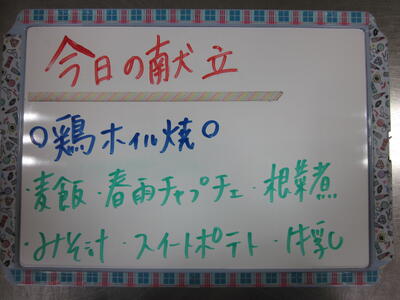 今日の献立
○鶏ホイル焼○
・麦飯・春雨チャプチェ・根菜煮
・みそ汁・スイートポテト・牛乳